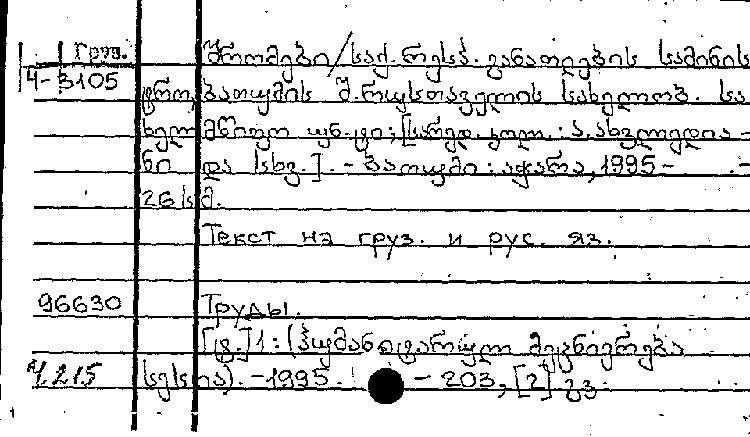 Груз. შრომები/საქ. რესპ. განათლების სამინის
4-3105
ტრო, ბათუმის შ. რუსთაველის სახელობ. სა
ხელმწიფო უნ-ტი; [სარედ. კოლ.: ა. ახვლედია-
ნი და სხვ.]. - ბათუმი: აჭარა, 1995 -
26 სმ.
Текст на груз. и рус. яз.
96630 Труды.
[ტ.] 1: (ჰუმანიტარულ მეცნიერება
4.215 სექსია). - 1995. - 203, [2] გვ.